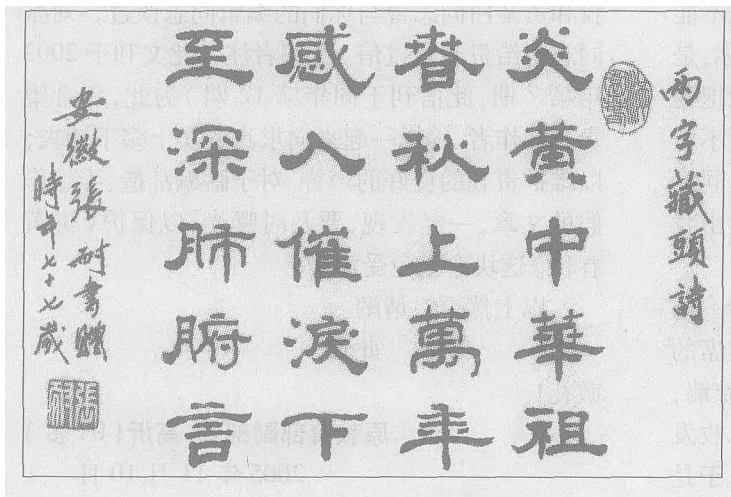 兩字藏頭詩
炎黃中華祖
春秋上萬年
感人催淚下
至深肺腑言
安徽張耐書贈
時年七十七歲